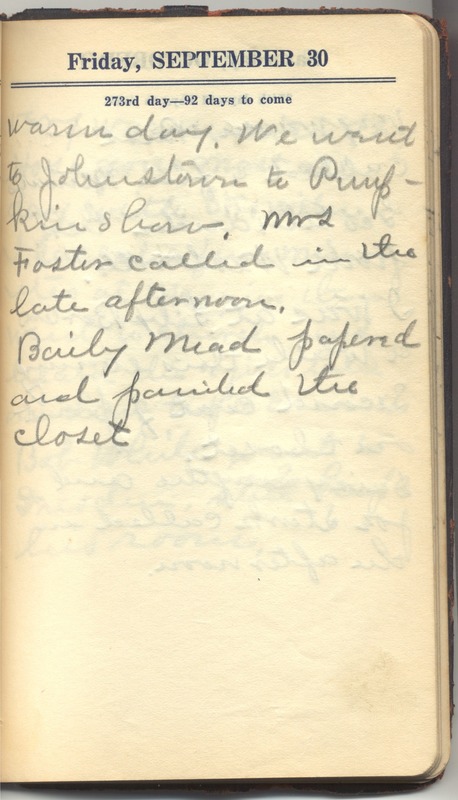 Friday, SEPTEMBER 30
273rd day—92 days to come
warm day. We went
to Johnstown to Pump-
kin Show. Mrs
Foster called in the
late afternoon.
Baily Mead papered
and painted the
closet